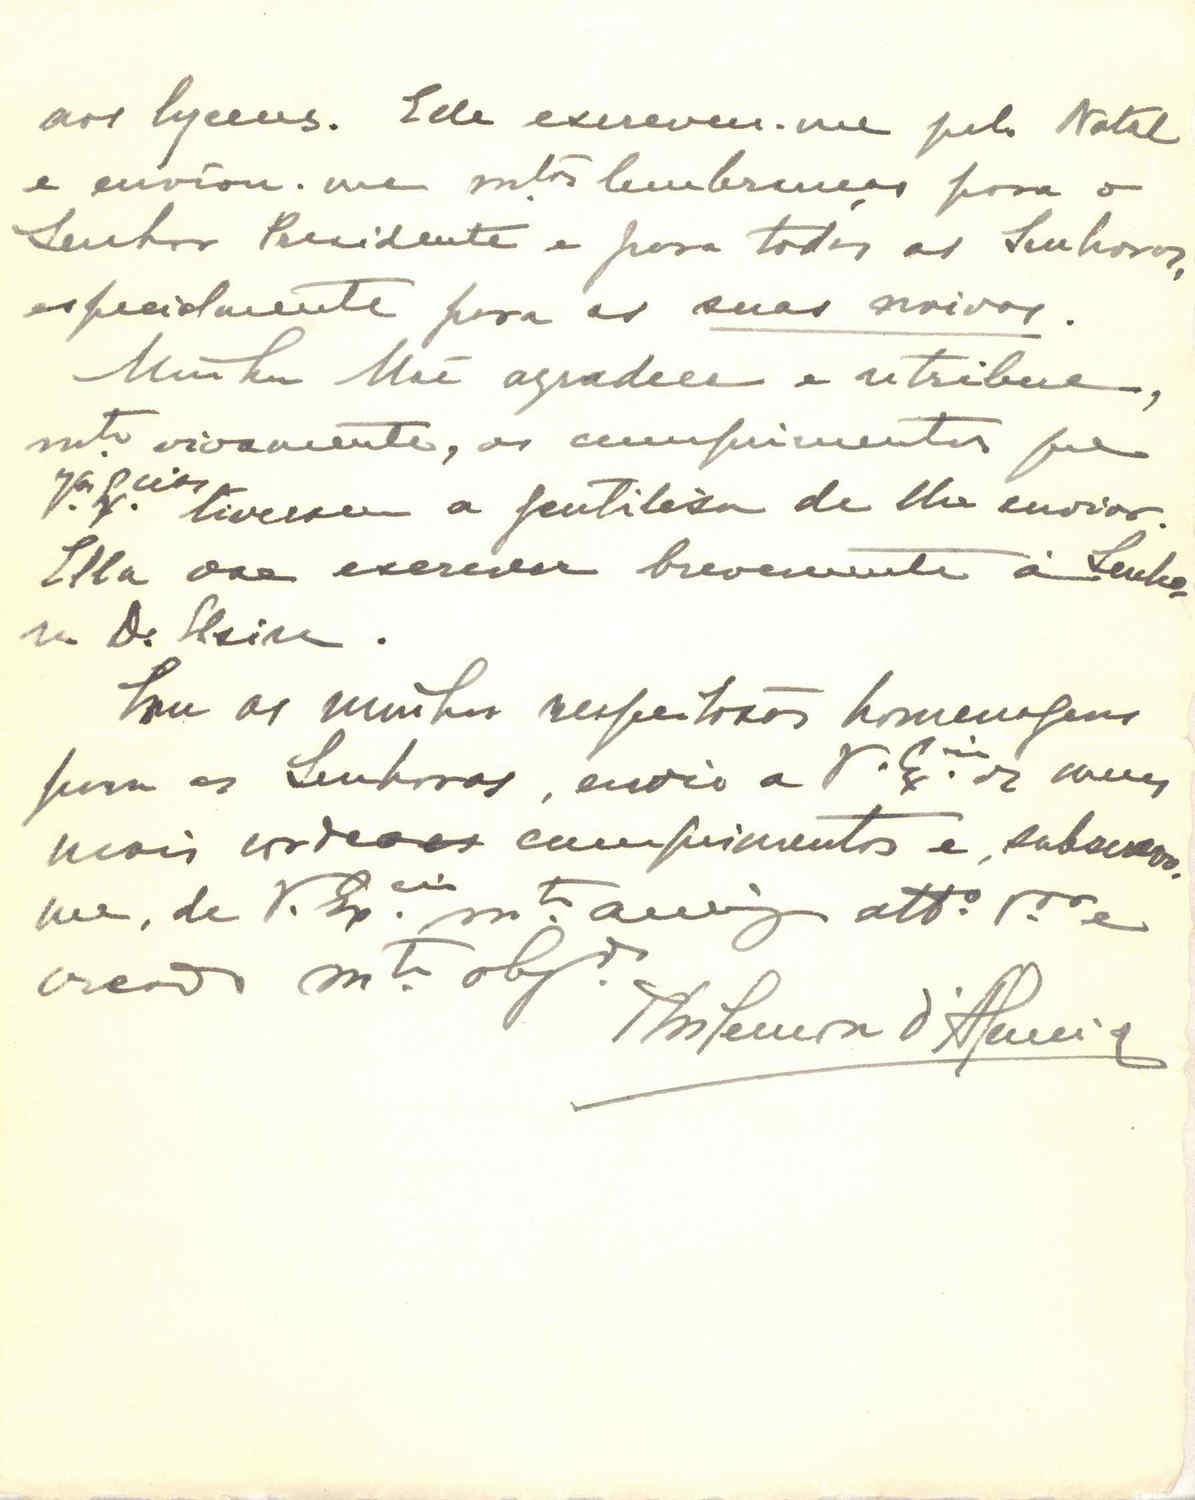 aos lyceus. Elle escreveu-me pelo Natal
e enviou-me mtas lembranças para o
Senhor Presidente e para todas as Senhoras,
especialmente para as suas noivas.
Minha Mãe agradece e retribue,
mto vivamente, os cumprimentos que
V.as Ex.cias tiveram a gentilesa de lhe enviar.
Ella vae escrever brevemente á Senho-
ra D. Elzira.
Com as minhas respeitosas homenagens
para as Senhoras, envio a V. Ex.cia os meus
mais cordeaes cumprimentos e, subscrevo-
me, de V. Ex.cia mto amigo atto V.dor e
creado mto obgdo
Philemon d'Almeida